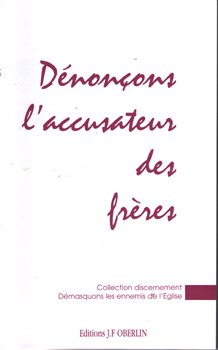 Dénonçons
l'accusateur
des
frères
Collection discernement
Démasquons les ennemis de l'Eglise
Editions J.F OBERLIN